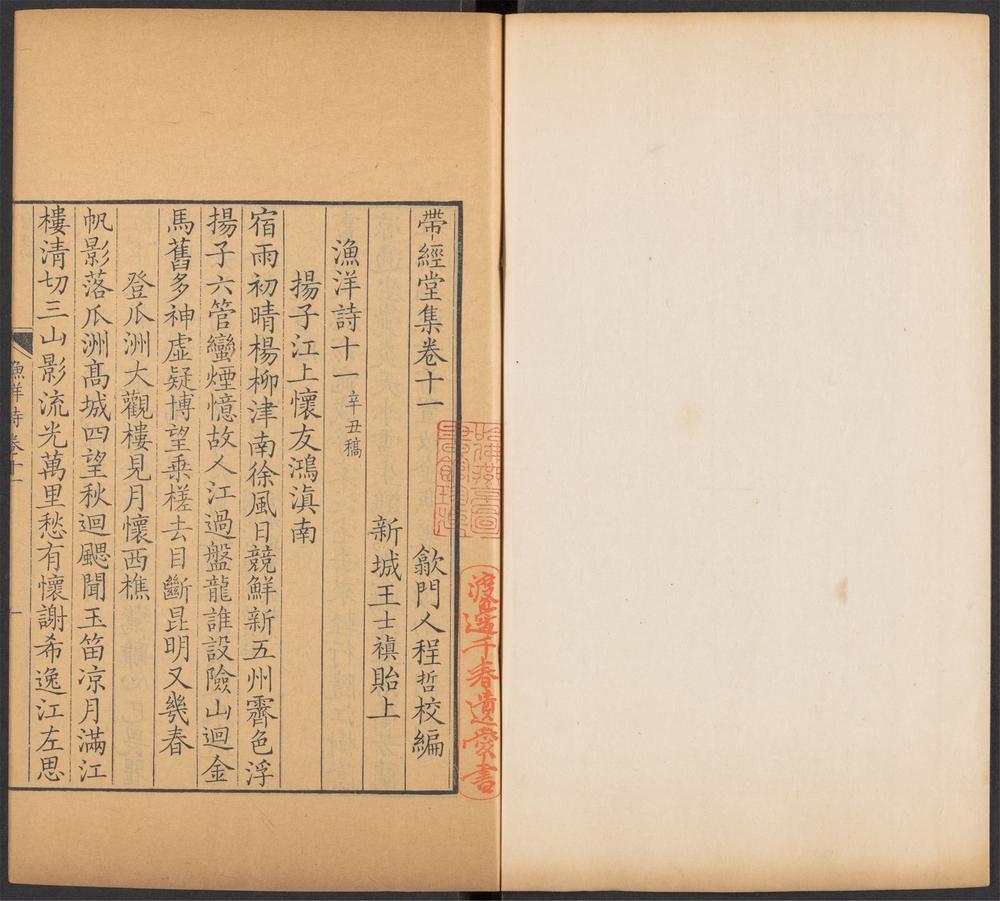 帶經堂集卷十一
歙門人程哲校編
新城王士禛貽上
漁洋詩十一 辛丑稿
揚子江上懷友鴻滇南
宿雨初晴楊柳津南徐風日競鮮新五州霽色浮
揚子六管蠻煙憶故人江過盤龍誰設險山迴金
馬舊多神虛疑博望乘槎去目斷昆明又幾春
登瓜洲大觀樓見月懷西樵
帆影落瓜洲高城四望秋迴颸聞玉笛凉月滿江
樓清切三山影流光萬里愁有懷謝希逸江左思
漁洋詩卷十一
一
渡邊千春遺愛書